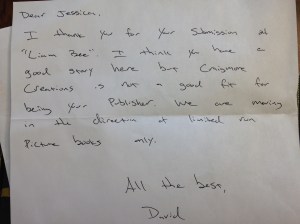 Dear Jessica,
I thank you for your submission of
"Liam Bee" I think you have a
good story here but Craigmore
Creations is not a good fit for
being your Publisher. We are moving
in the direction of limited run
Picture books only.
All the best,
David